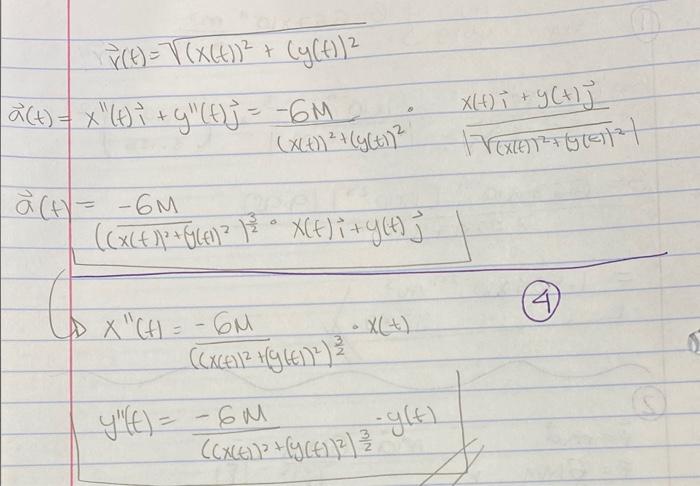 r⃗(t) = √((x(t))² + (y(t))²
a⃗(t) = x''(t)i⃗ + y''(t)j⃗ = -GM/((x(t))² + (y(t))²) · (x(t)i⃗ + y(t)j⃗)/|√((x(t))² + (y(t))²)|
a⃗(t) = -GM/((x(t))² + (y(t))²)^(3/2) · x(t)i⃗ + y(t)j⃗
④
x''(t) = -GM/((x(t))² + (y(t))²)^(3/2) · x(t)
y''(t) = -GM/((x(t))² + (y(t))²)^(3/2) · y(t)